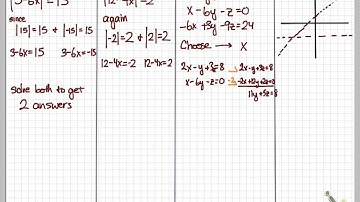 |3-6x|=15
since
|15|=15 & |-15|=15
3-6x=15 3-6x=-15
solve both to get
2 answers
|12-4x|=2
again
|-2|=2 & |2|=2
12-4x=-2 12-4x=2
x-6y-z=0
-6x+3y-9z=24
Choose → x
2x-y+3z=8
x-6y-z=0
2x-y+3z=8
-2x+12y+2z=0
11y+5z=8